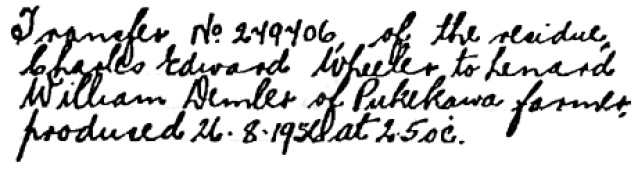 Transfer No 249406, of the residue,
Charles Edward Wheeler to Lenard
William Demler of Pukekawa farmer,
produced 26.8.195 at 2.5 oc.